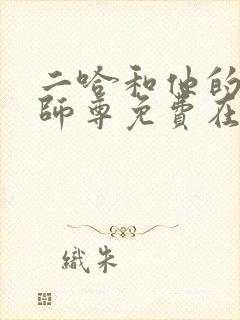 二哈和他的
師尊免費在
織朱